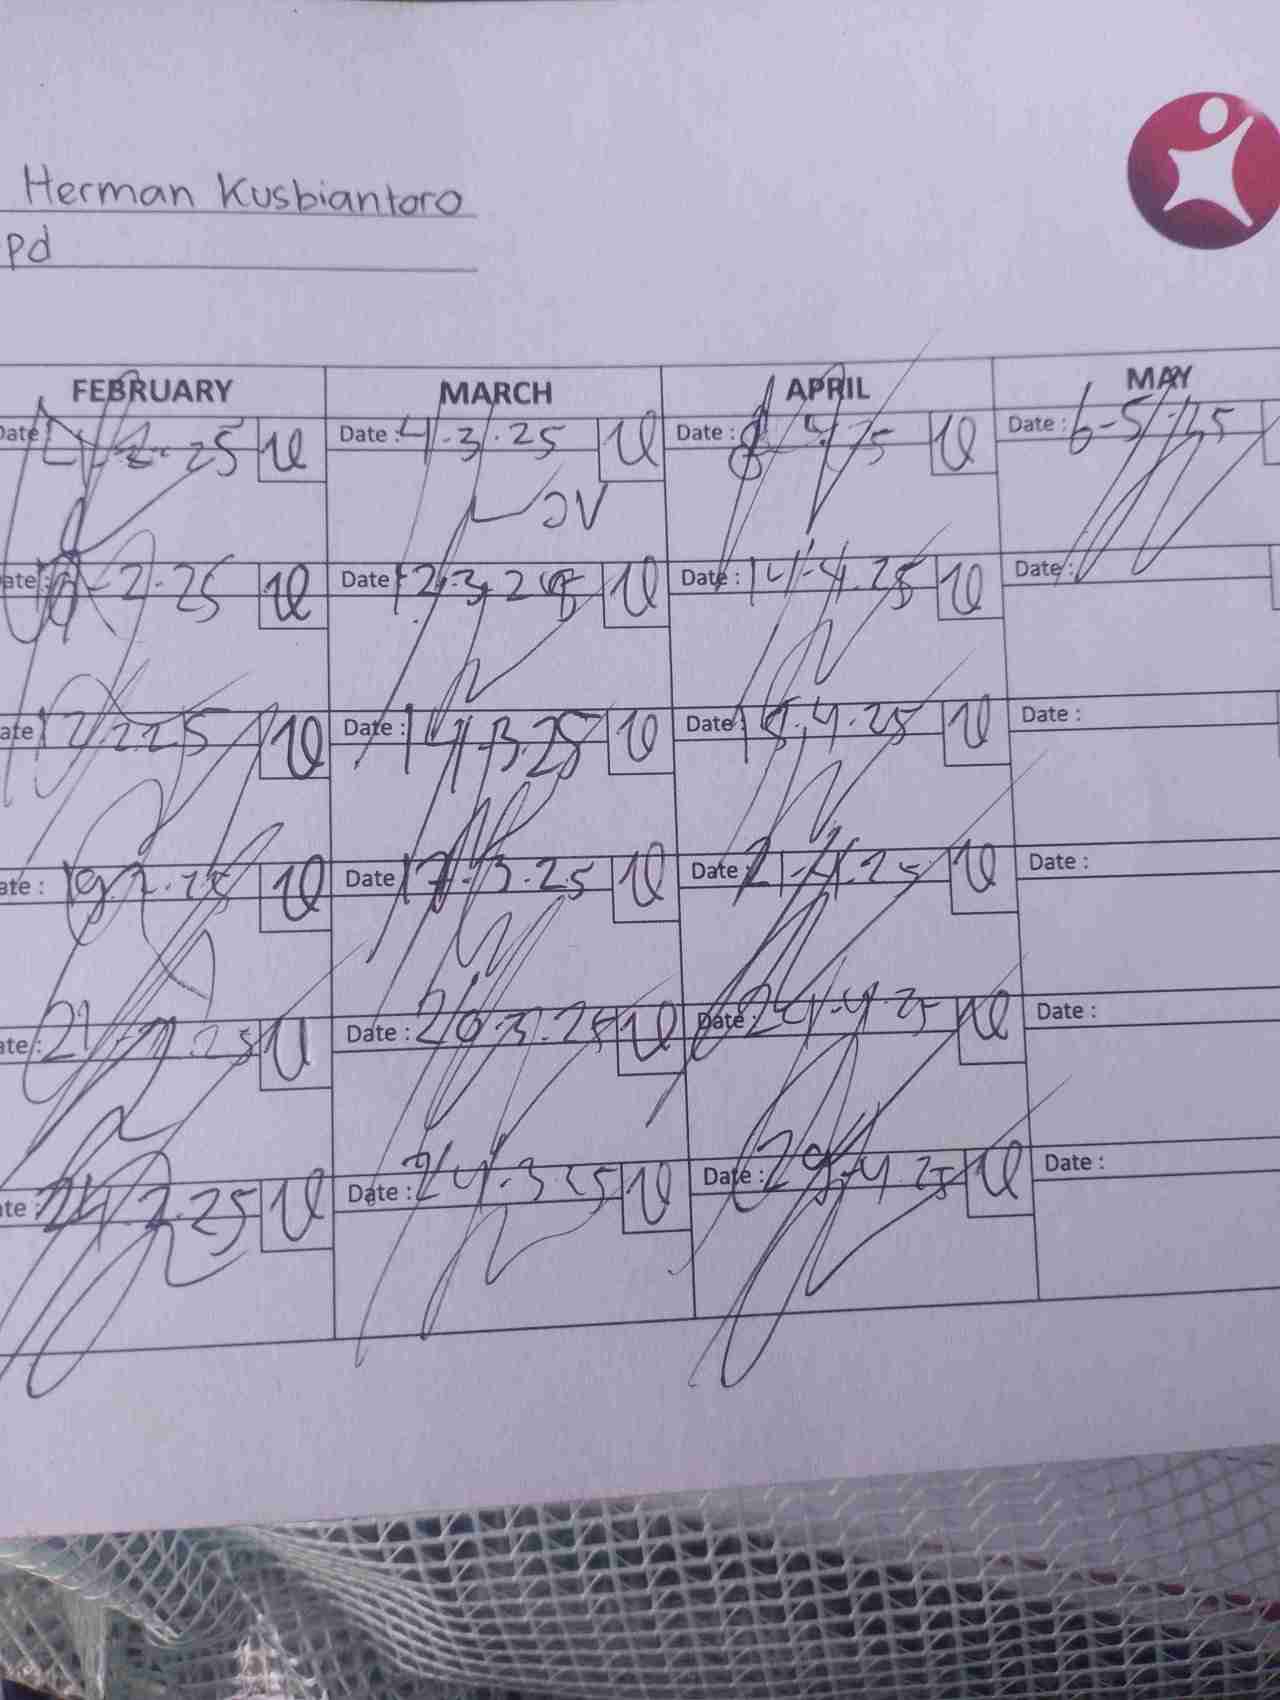 Herman Kusbiantoro
pd
FEBRUARY MARCH APRIL MAY
Date 4-2-25 U Date : 4-3-25 U Date : 8-4-25 U Date : 6-5-25
ate 2-25 U Date 12-3-25 U Date : 14-4-25 U Date :
ate 12-2-25 U Date : 14-3-25 U Date 15-4-25 U Date :
ate : 19-2-25 U Date 17-3-25 U Date 21-4-25 U Date :
ate : 21 25 U Date : 20-3-25 U Date : 24-4-25 U Date :
te : 24-2-25 U Date : 24-3-25 U Date : 29-4-25 U Date :